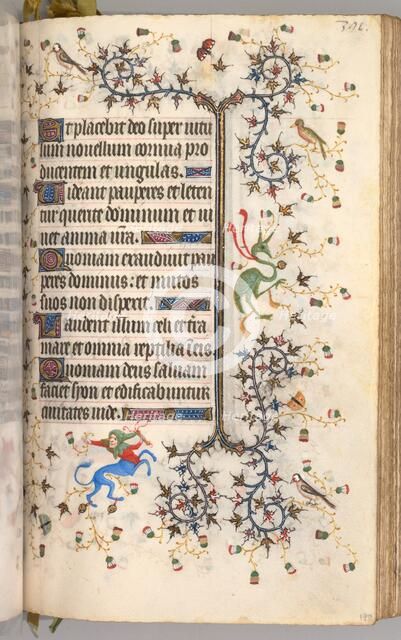 396.
Et placebit deo super vitu
lum novellum cornua pro
ducentem et ungulas.
Videant pauperes et leten
tur querite dominum et vi
vet anima vr̄a.
Quoniam exaudivit pau
peres dominus: et vinctos
suos non dispexit.
Laudent illum celi et terra
mare et omnia reptilia ī eis
Quoniam deus salvam
faciet syon et edificabuntur
civitates iude.
Heritage
Heritage
Heritage